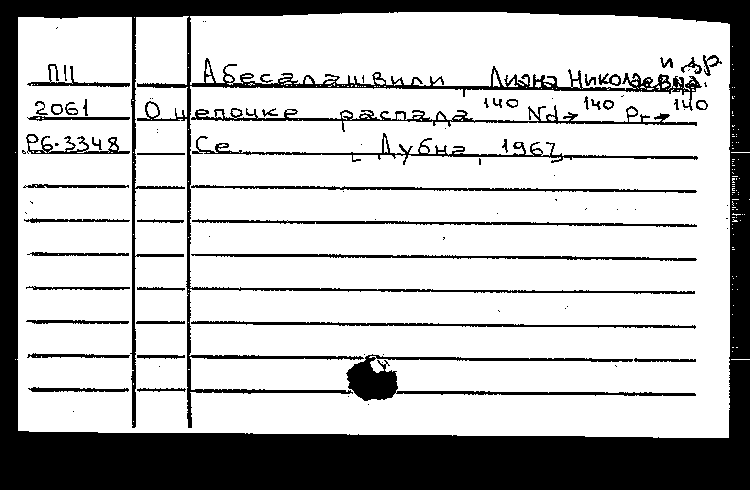 ПП Абесалашвили, Лиана Николаевна. и др.
2061 О цепочке распада ¹⁴⁰Nd→ ¹⁴⁰Pr→ ¹⁴⁰
Р6-3348 Ce. [Дубна, 1967].